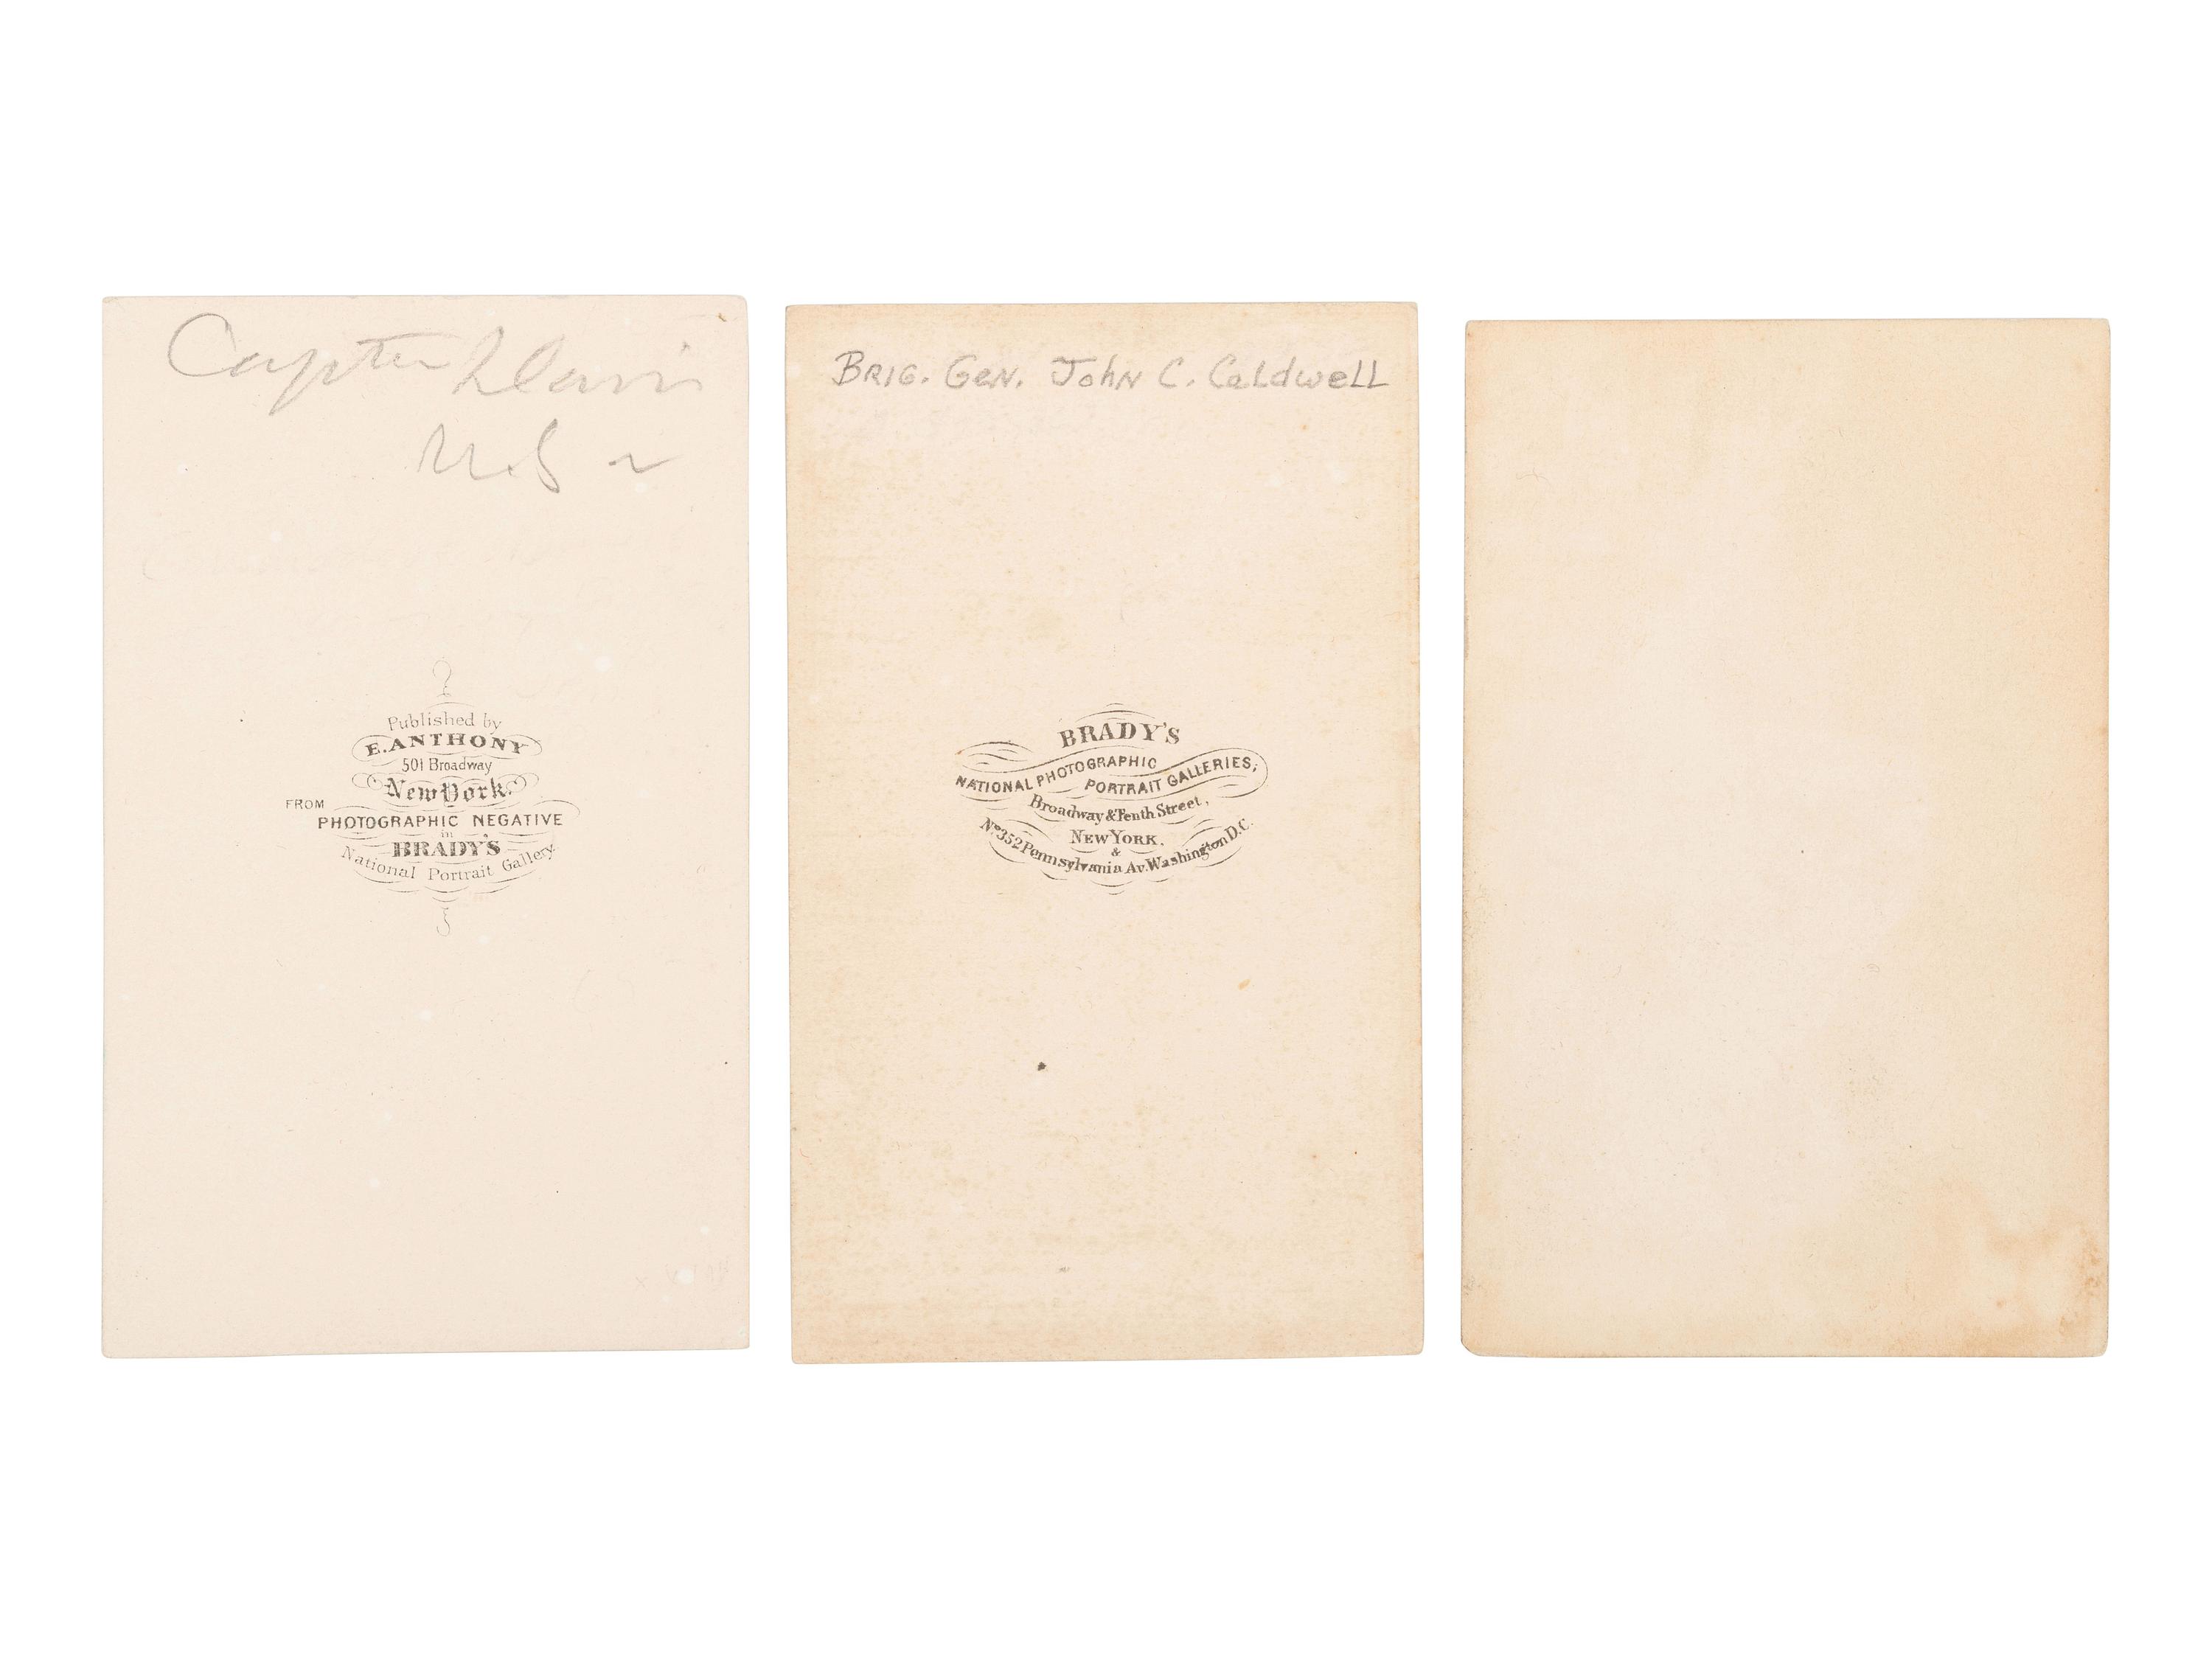 Captn Davis
U.S N
Published by
E. ANTHONY
501 Broadway
New York.
FROM
PHOTOGRAPHIC NEGATIVE
in
BRADY'S
National Portrait Gallery.
BRIG. GEN. JOHN C. CALDWELL
BRADY'S
NATIONAL PHOTOGRAPHIC
PORTRAIT GALLERIES,
Broadway & Tenth Street,
NEW YORK.
&
No. 352 Pennsylvania Av. Washington D.C.